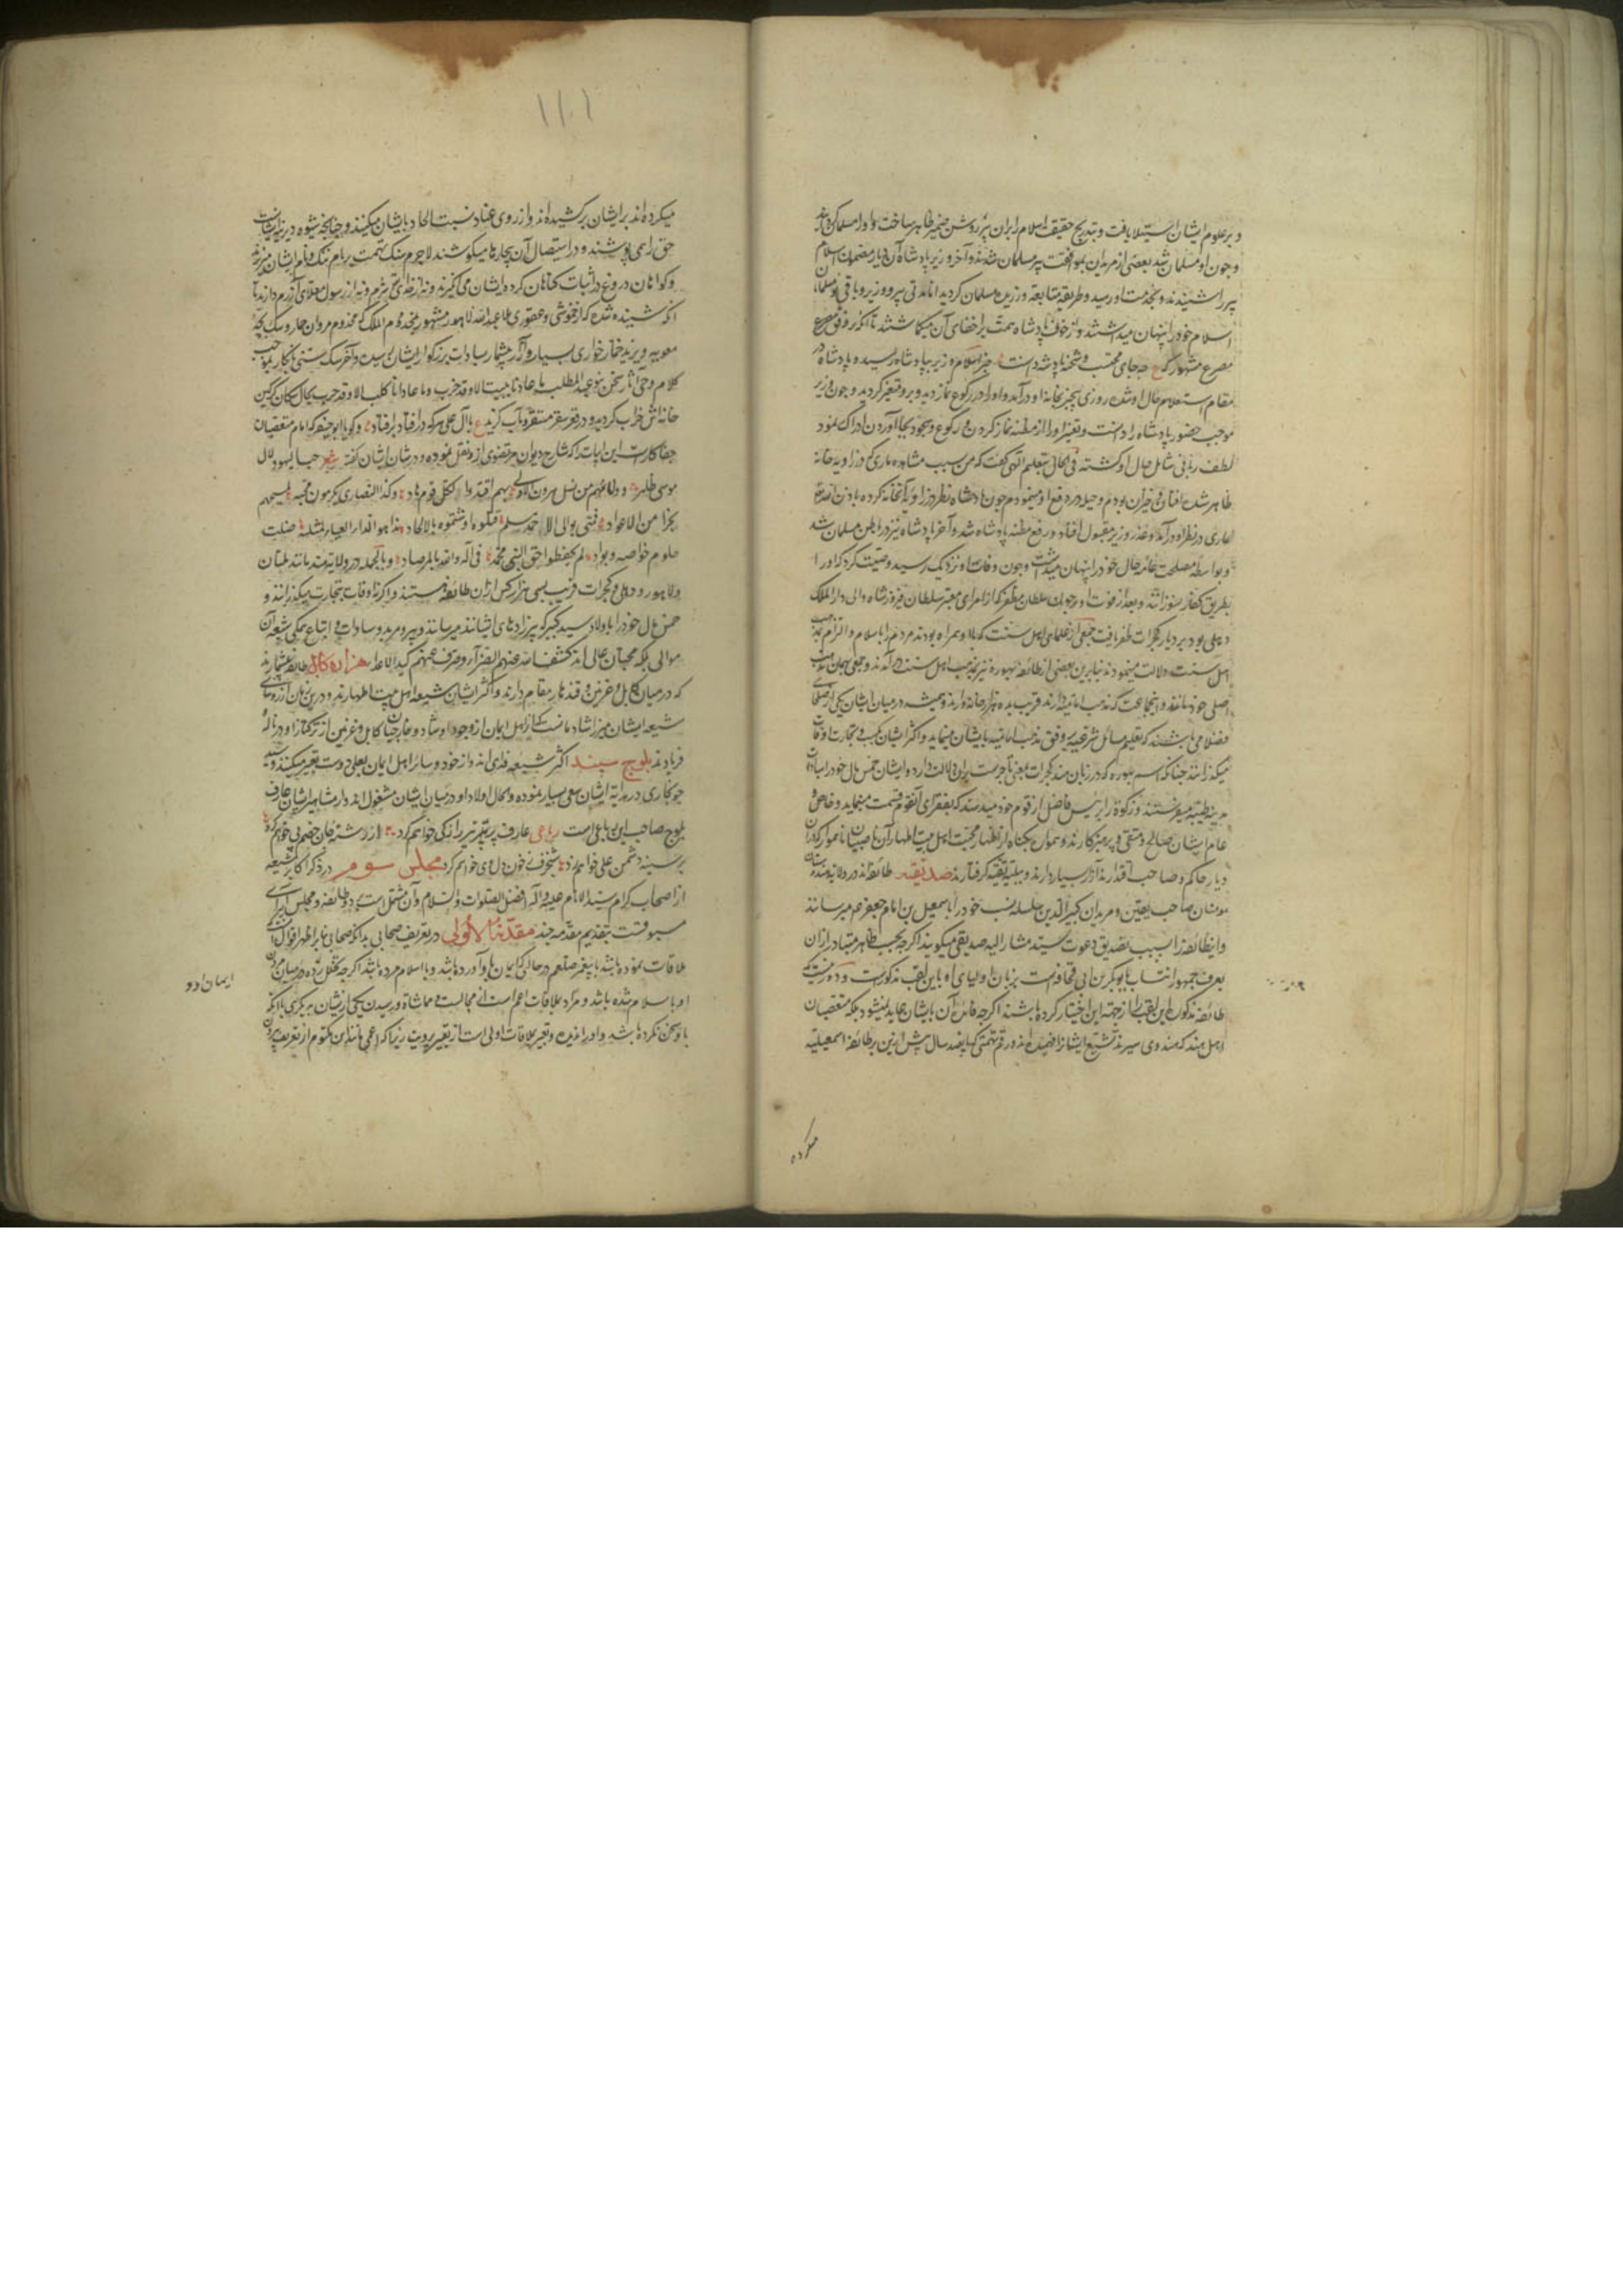 و بر علوم ایشان استیلا یافت و بتدریج حقیقت اسلام را بران پیر روشن ضمیر ظاهر ساخت و او را مسلمان
و چون او مسلمان شد بعضی از مریدان بموافقت پیر مسلمان شدند و آخر وزیر پادشاه آن دیار اسلام
پیر را شنیدند و بخدمت او رسید و طریقه متابعه ورزیده مسلمان کردید اما مدتی پیر و وزیر و باقی
اسلام خود را پنهان میداشتند و از خوف پادشاه همت بر اخفای آن میکماشتند تا آنکه بر وفق
مصرع مشهور که ع چه جای محتسب و شحنه پادشه دانست خبر اسلام وزیر بپادشاه رسیده و پادشاه در
مقام استعلام حال او شده روزی بیخبر بخانه او درآمد و او را در رکوع نماز دید و برو متغیر کردید و چون وزیر
موجب حضور پادشاه را دانست و تغیر او را از مظنه نماز کردن و رکوع و سجود بجا آوردن ادراک نمود
لطف ربانی شامل حال او کشته فی الحال بتعلیم الهی کفت که من بسبب مشاهده ماری که در زاویه خانه
ظاهر شده افتان و خیزان بودم و حیله در دفع او مینمودم چون پادشاه نظر در زاویه آنخانه کرده باذن الله
ماری در نظر او درآمد و عذر وزیر مقبول افتاد و رفع مظنه پادشاه شد و آخر پادشاه نیز در باطن مسلمان شد
و بواسطه مصلحت حال خود را پنهان میداشت و چون وفات او نزدیک رسید وصیت کرد که او را
بطریق کفار نسوزانند و بعد از فوت او چون سلطان مظفر که از امرای معتبر سلطان فیروز شاه والی دار الملک
دهلی بود بر دیار کجرات ظفر یافت جمعی از علمای اهل سنت که با او همراه بودند مردم را باسلام و التزام
اهل سنت دلالت مینمودند بنابرین بعضی از طائفه بهوره نیز بمذهب اهل سنت درآمدند و جمعی بهمان مذهب
اصلی خود ماندند و اینجماعت که مذهب امامیه دارند قریب به ده هزار خانه وارند و همیشه در میان ایشان یکی از صلحای
فضلا می باشند که تعلیم مسائل شرعیه بر وفق مذهب امامیه بایشان مینماید و اکثر ایشان بکسب و تجارت اوقات
میکذرانند چنانکه اسم بهوره که در زبان هند کجرات بمعنی تاجر است بران دلالت دارد و ایشان خمس مال خود را بسادات
مدینه طیبه میفرستند و زکوة را برئیس فاضل از قوم خود میدهند که بفقرای آنقوم قسمت مینماید و خاص و
عام ایشان صالح و متقی و پرهیزکارند و همواره بکناه اظهار محبت اهل بیت اطهار از آن ناصبیان نابکار که در آن
دیار حاکم و صاحب اقتدارند آزار بسیار دارند و ببلیه تقیه کرفتارند صدیقیه طائفه اند در ولایت هند
مومنان صاحب یقین و مریدان کبیر الدین سلسله نسب خود را باسمعیل بن امام جعفر ع میرسانند
و اینطائفه را بسبب تصدیق دعوت سید مشار الیه صدیقی میکویند اکرچه بحسب ظاهر متبادر از آن
بعرف جمهور انتساب بابوبکر بن ابی قحافه است بزبان اولیای او باین لقب مذکور است
طائفه مذکوره این لقب را از جهة این اختیار کرده باشند اکرچه فائده آن بایشان عاید نمیشود بلکه متعصبان
اهل هند که هندوی سیرند تشیع ایشانرا فهمیده اند و رقم تهمتی که پانصد سال پیش ازین بر طائفه اسمعیلیه
میکرده
۱۱۰۱
میکرده اند بر ایشان برکشیده اند و از روی عناد نسبت الحاد بایشان میکنند و چنانچه شیوه دیرینه ایشانست
حق را می پوشند و در استیصال آن بیچاره ها میکوشند لاجرم سنک تهمت بر نام ننک و نام ایشان میزنند
و کواهان دروغ در اثبات کناهان کرده ایشان می انکیزند و نه از خدای شرم و نه از رسول آزرم دارند تا
آنکه شنیده شده که از خموشی ملا عبد الله لاهوری مشهور بمخدوم الملک که مخدوم مروان حمار و سک بچه
معویه و یزید خمار خواری بسیار و آزار بیشمار بسادات بزرکوار ایشان رسید و آخر سک سنی نابکار بموجب
کلام سخن بنو عبد المطلب ما عادانا بیت الا وقد خرب وما عادانا کلب الا وقد جرب بحال سکان کرکین
خانه اش خراب کردید و در قعر سقر مستقر و مآب کزید ع با آل علی هر که درافتاد برافتاد و کویا ابوحنیفه که امام متعصبان
جفاکار است این ابیات را که شارح دیوان مرتضوی از او نقل نموده در شان ایشان کفته شعر حب الیهود لآل
موسی ظاهر وولاؤهم من نسل هرون بهم اقتدوا ولکل قوم هاد وکذا النصاری یکرمون محبة لمسیحهم
نجرا من الاعواد فمتی یوالی آل احمد مسلم قتلوه او شتموه بالالحاد هذا هو الداء العیاء لمثله ضلت
حلوم حواضر وبواد لم یحفظوا حق النبی محمد فی آله والله بالمرصاد و بالجمله در ولایت هند مانند ملتان
و لاهور و دهلی و کجرات قریب بسی هزار کس از آن طائفه هستند و اکثر اوقات بتجارت میکذرانند و
خمس مال خود را باولاد سید کبیر که پیرزادهای ایشانند میرسانند و پیر و مرید و سادات و اتباع همکی شیعه آن
موالی بلکه محبان عالی اند کشف الله عنهم الضراء وصرف عنهم کید الاعداء هزاره کابل طائفه بیشمارند
که در میان کابل و غزنین و قندهار مقام دارند و اکثر ایشان شیعه اهل بیت اطهارند و درین زمان از رؤسای
شیعه ایشان میرزا شادمانست که از اهل ایمان از وجود او شاد و خارجیان کابل و غزنین از ترکتاز او در ناله و
فریادند بلوچ سپند اکثر شیعه فدای اند و از خود و سائر اهل ایمان بعلی دوست تعبیر میکنند
در هدایة ایشان سعی بسیار نموده و بالحال اولاد او در میان ایشان مشغول اند و از مشاهیر ایشان عارف
بلوچ صاحب این رباعی است رباعی عارف خواهم کرد از رشته جان
بر سینه دشمن علی خواهم زد شنجرف ز خون دل وی خواهم کرد مجلس سوم در ذکر اکابر شیعه
از اصحاب کرام سید الانام علیه وآله افضل الصلوات والسلام و آن مشتمل است بر دو طائفه و مجلس آرائی
مسبوقست بتقدیم مقدمه چند مقدمة الاولی در تعریف صحابی بدانکه صحابی بنابر اظهر اقوال کسی است
ملاقات نموده باشد با پیغمبر صلعم در حالتی که ایمان باو آورده باشد و با اسلام مرده باشد اکرچه تخلل رده در میان
ایمان او و
او با سلام شده باشد و مراد بملاقات اعم است از مجالست و مماشاة و رسیدن یکی از ایشان بدیکری با آنکه
با او سخن نکرده باشد و او را ندیده و تعبیر بملاقات اولی است از تعبیر برویت زیرا که اعمی مانند ابن مکتوم از تعریف